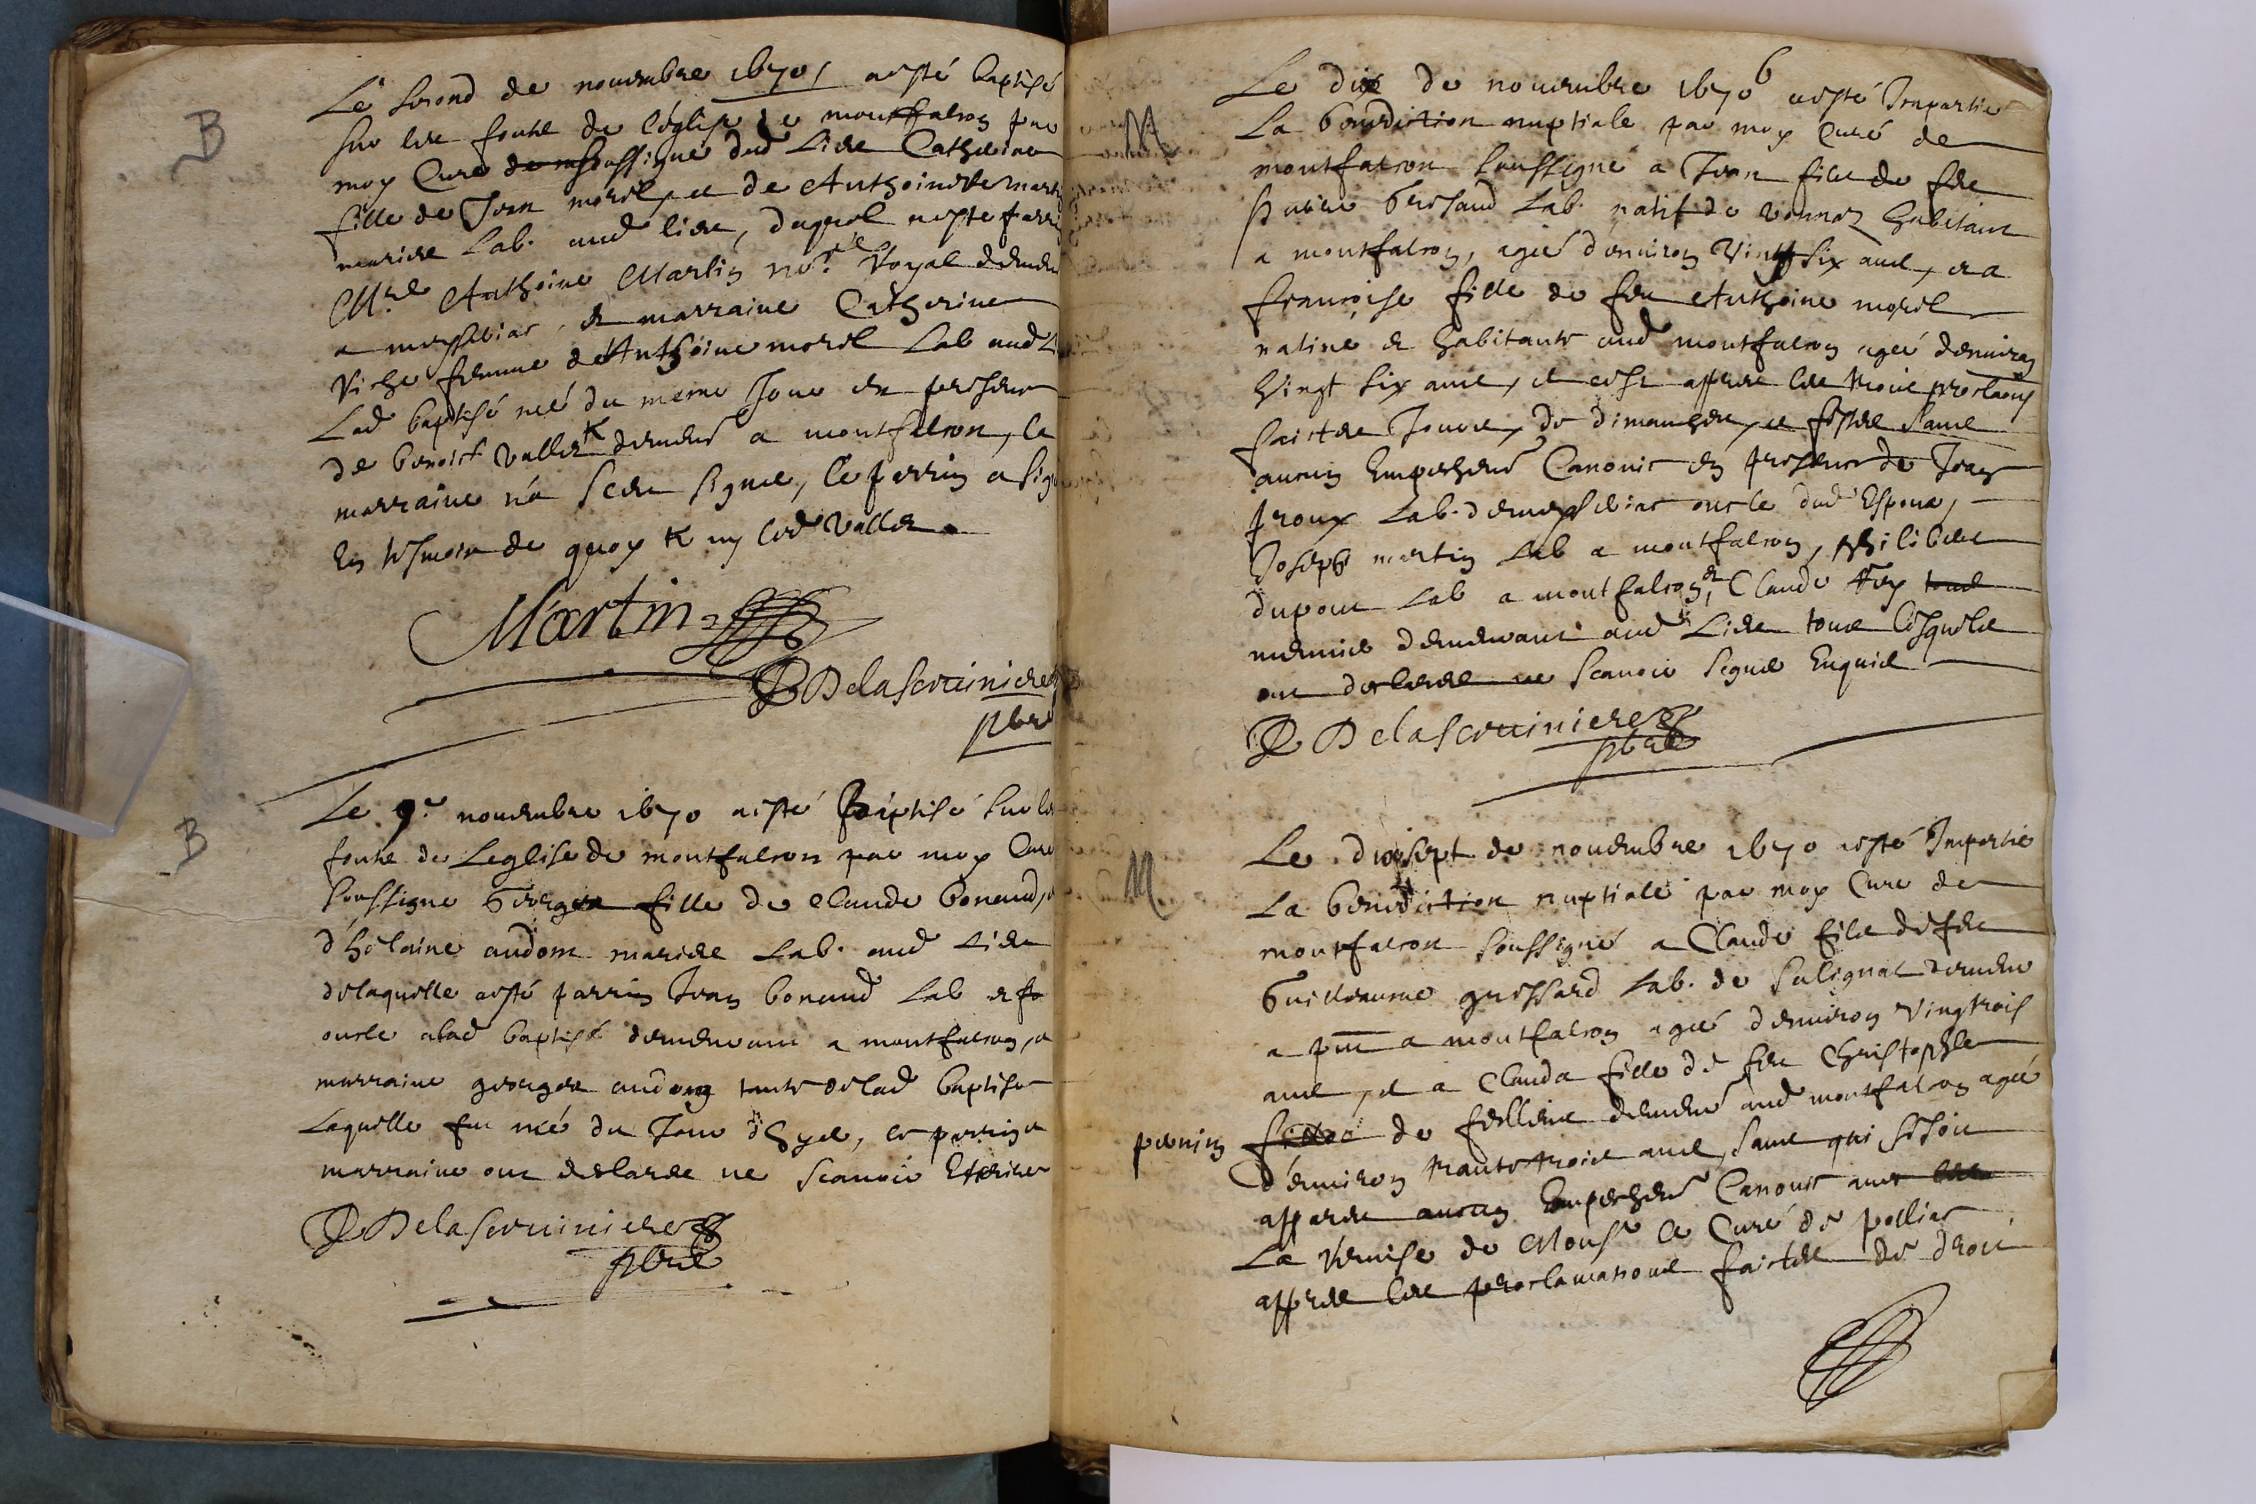 B
Le second de novembre 1670 / a esté baptisé
sur les fonts de l'églisse de montfalcon par
moy Curé soussigné dud Lieu Catherine
fille de Jean morel, et de Anthoinette mart
mariés Lab. aud lieu, duquel a esté parr
Mre Anthoine Martin nore Royal demeu
a meyssiliac, et marraine Catherine
Viche femme de Anthoine morel Lab aud L
Lad baptisé née du meme Jour en presence
de benoist vallet demeur a montfalcon, la
marraine n'a sceu signer, le parrin a sig
En tesmoin de quoy led vallet
Martin
Delaserviniere
pbre
B
Le 9e novembre 1670 a esté Baptisé sur les
fonts de Leglise de montfalcon par moy Curé
soussigné George fille de Claude bonaud, e
d'helaine andom mariés Lab. aud Lieu
delaquelle a esté parrin Jean bonaud Lab
oncle alad baptisé demeurant a montfalcon, e
marraine george tante delad baptisée
Laquelle fut née du Jour d'hyer, le parrin e
marraine ont declaré ne scavoir Escrire
Delaserviniere
pbre
M
Le dix de novembre 1670 a esté Impartie
La benediction nuptiale par moy Curé de
montfalcon soussigné a Jean fils de feu
Pierre Lab. natif de vonnaz habitant
a montfalcon, agé d'environ vingt six ans, et a
francoise fille de feu Anthoine morel
native et habitante aud montfalcon agée denviron
vingt six ans, et ce apres les trois proclaons
faictes Jours de dimanches, et festes sans
aucun Empeschemt Canonic en presence de Jean
proux Lab. de meyssiliac oncle dud Espoux,
Joseph martin Lab a montfalcon, philibert
dupont Lab a montfalcon, et Claude
demeurant aud Lieu tous lesquels
ont declaré ne scavoir signer Enquis
Delaserviniere
pbre
M
Le dixsept de novembre 1670 a esté Impartie
La benediction nuptiale par moy Curé de
montfalcon soussigné a Claude fils de feu
Guillaume grissard Lab. de salignat demeur
a pnt a montfalcon agé d'environ vingtrois
ans, et a Clauda fille de feu Christophle
pernin de feillens demeur aud montfalcon agée
d'environ trante trois ans, sans qui se soit
apparu aucun Empeschemt Canonic avec
La remise de Monsr le Curé de polliat
appres les proclamations faictes de droit